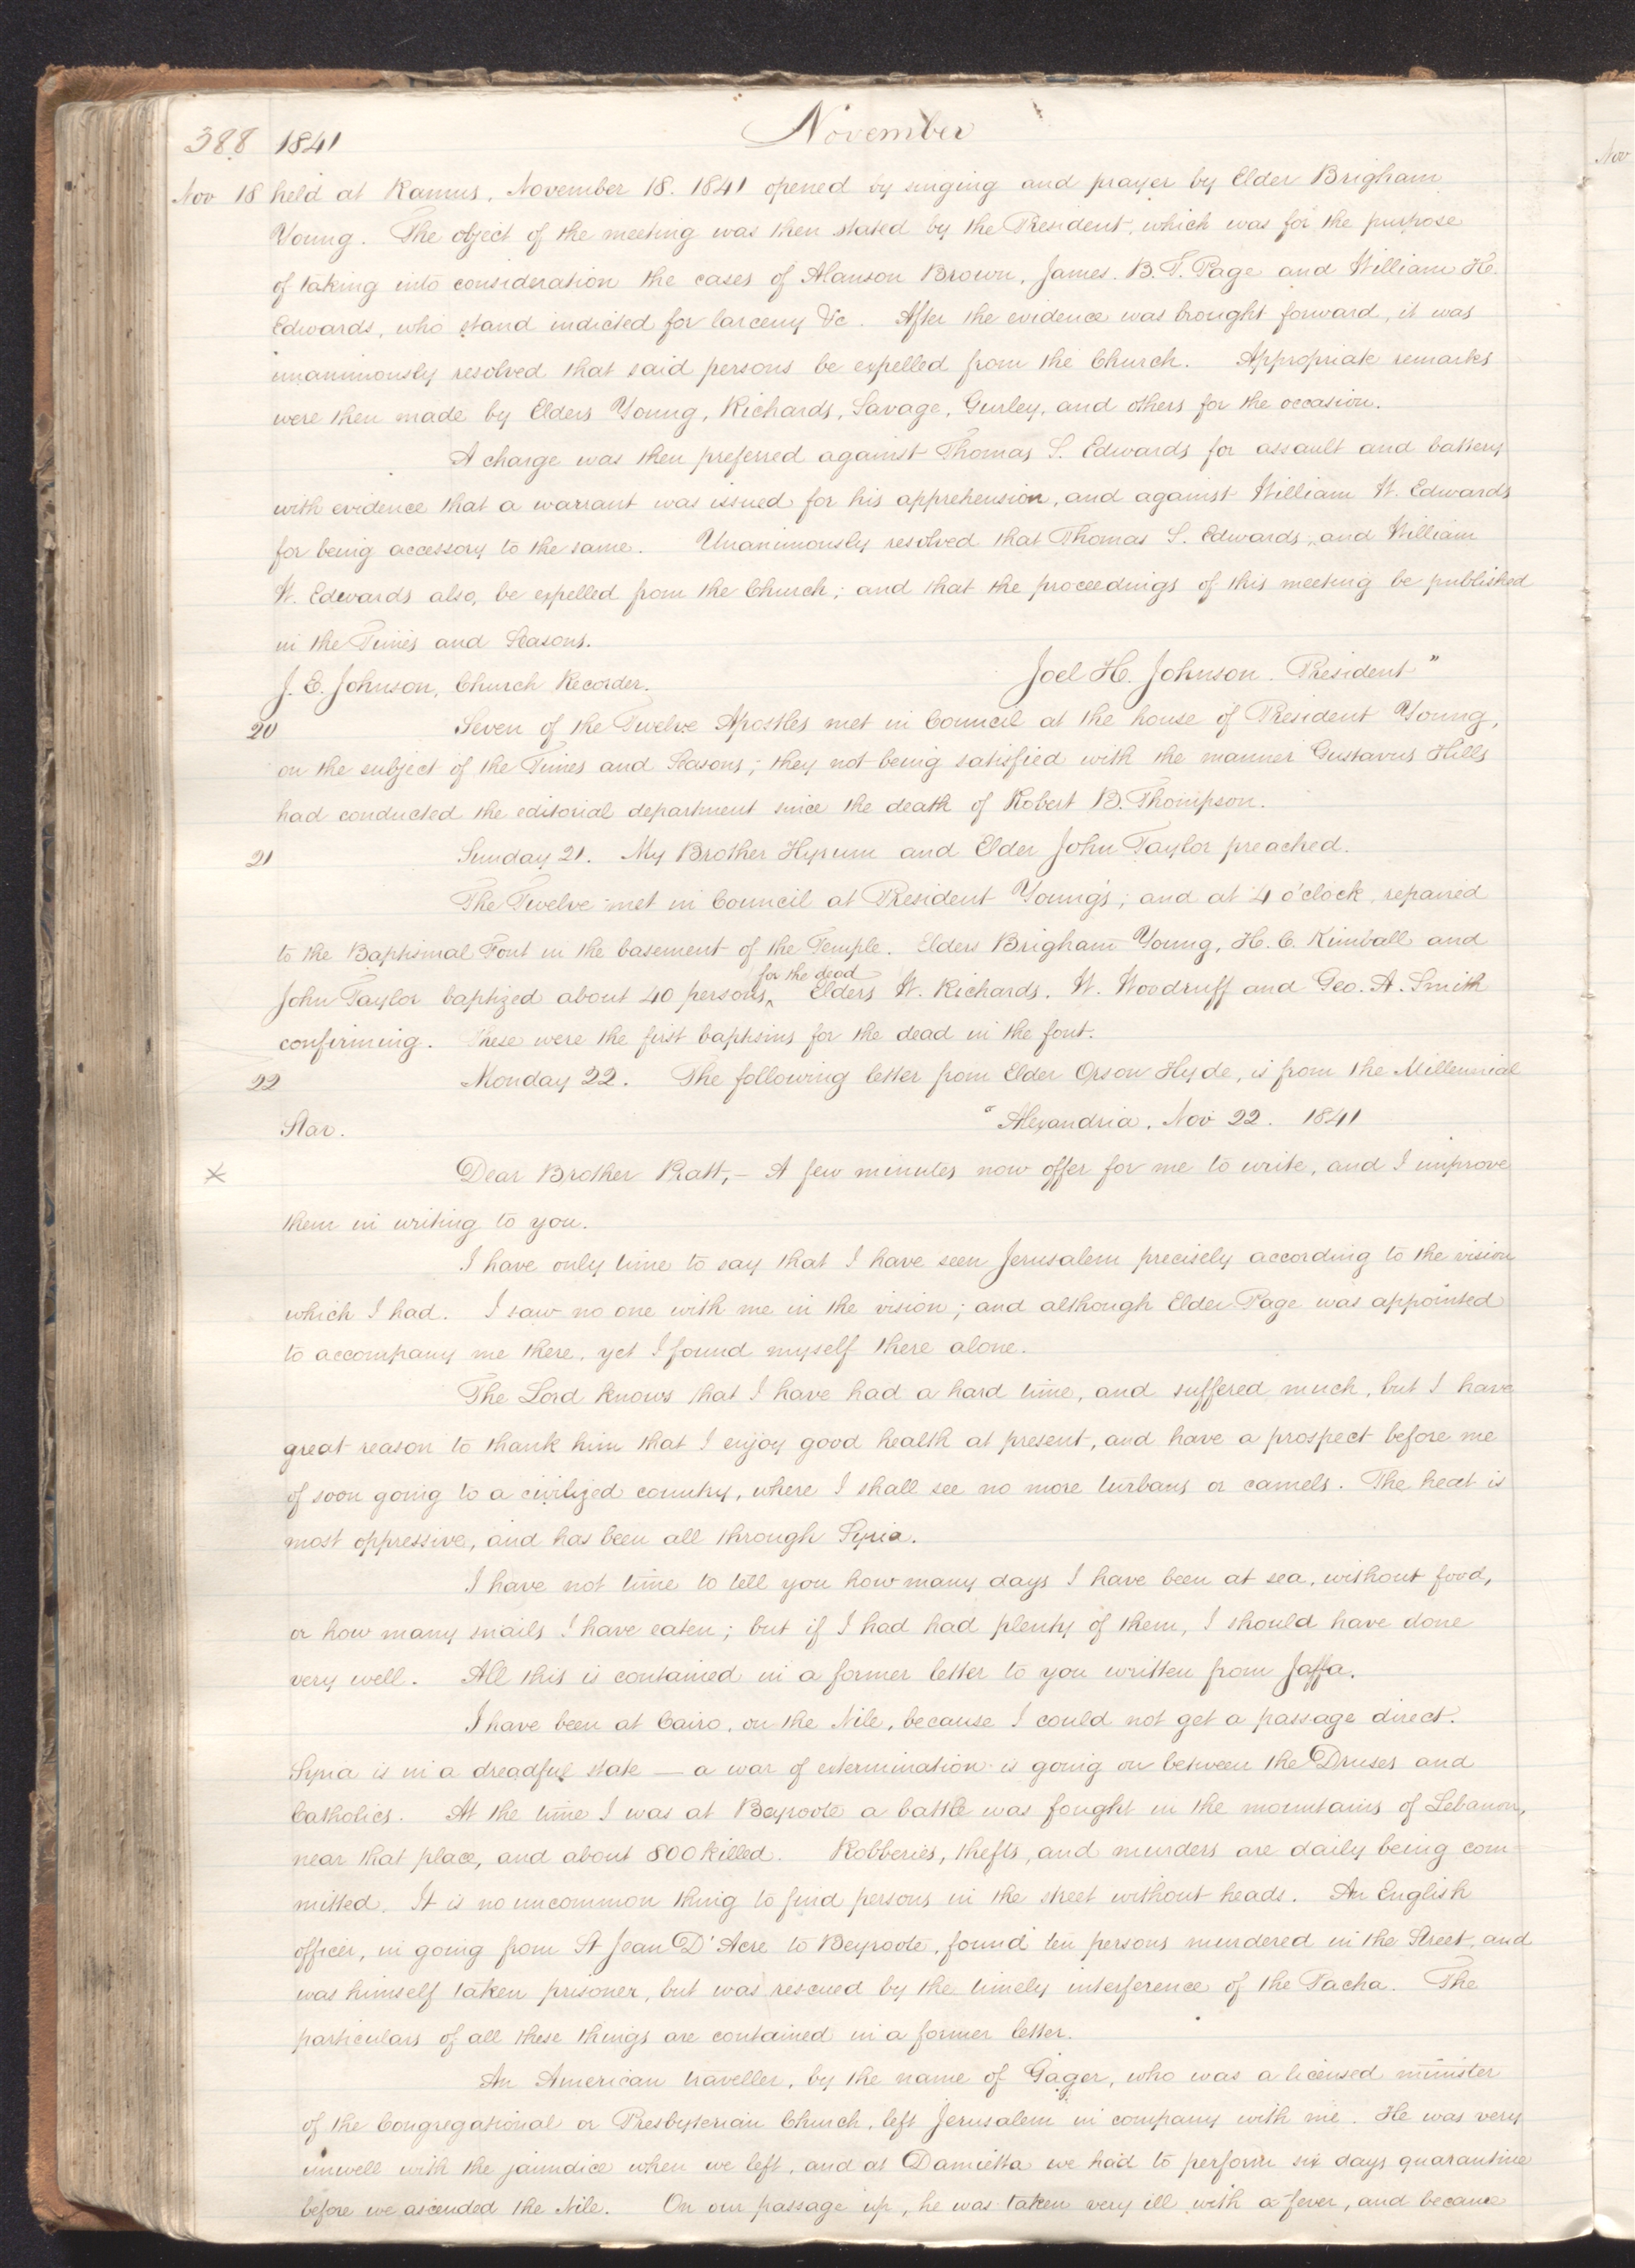 November
388 1841
Nov 18 held at Ramus, November 18. 1841 opened by singing and prayer by Elder Brigham
Young. The object of the meeting was then stated by the President, which was for the purpose
of taking into consideration the cases of Alanson Brown, James. B. T. Page and William H.
Edwards, who stand indicted for larceny &c. After the evidence was brought forward, it was
unanimously resolved that said persons be expelled from the Church. Appropriate remarks
were then made by Elders Young, Richards, Savage, Gurley, and others for the occasion.
A charge was then preferred against Thomas S. Edwards for assault and battery
with evidence that a warrant was issued for his apprehension, and against William W. Edwards
for being accessory to the same. Unanimously resolved that Thomas S. Edwards, and William
W. Edwards also, be expelled from the Church; and that the proceedings of this meeting be published
in the Times and Seasons.
Joel H. Johnson. President"
J. E. Johnson, Church Recorder.
20 Seven of the Twelve Apostles met in Council at the house of President Young,
on the subject of the Times and Seasons; they not being satisfied with the manner Gustavus Hills
had conducted the editorial department since the death of Robert B. Thompson.
21 Sunday 21. My Brother Hyrum and Elder John Taylor preached.
The Twelve met in Council at President Young's; and at 4 o'clock, repaired
to the Baptismal Font in the basement of the Temple. Elders Brigham Young, H. C. Kimball and
for the dead
John Taylor baptized about 40 persons ^ Elders W. Richards. W. Woodruff and Geo. A. Smith
confirming. These were the first baptisms for the dead in the font.
22 Monday 22. The following letter from Elder Orson Hyde, is from the Millennial
Star. "Alexandria, Nov 22. 1841
Dear Brother Pratt,— A few minutes now offer for me to write, and I improve
them in writing to you.
I have only time to say that I have seen Jerusalem precisely according to the vision
which I had. I saw no one with me in the vision; and although Elder Page was appointed
to accompany me there, yet I found myself there alone.
The Lord knows that I have had a hard time, and suffered much, but I have
great reason to thank him that I enjoy good health at present, and have a prospect before me
of soon going to a civilized country, where I shall see no more turbans or camels. The heat is
most oppressive, and has been all through Syria.
I have not time to tell you how many days I have been at sea, without food,
or how many snails I have eaten; but if I had had plenty of them, I should have done
very well. All this is contained in a former letter to you written from Jaffa.
I have been at Cairo, on the Nile, because I could not get a passage direct.
Syria is in a dreadful state — a war of extermination is going on between the Druses and
Catholics. At the time I was at Beyroote a battle was fought in the mountains of Lebanon,
near that place, and about 800 killed. Robberies, thefts, and murders are daily being com-
mitted. It is no uncommon thing to find persons in the street without heads. An English
officer, in going from St Jean D'Acre to Beyroote, found ten persons murdered in the Street, and
was himself taken prisoner, but was rescued by the timely interference of the Pacha. The
particulars of all these things are contained in a former letter.
An American traveller, by the name of Gager, who was a licensed minister
of the Congregational or Presbyterian Church, left Jerusalem in company with me. He was very
unwell with the jaundice when we left, and at Damietta we had to perform six days quarantine
before we ascended the Nile. On our passage up, he was taken very ill with a fever, and became
Nov